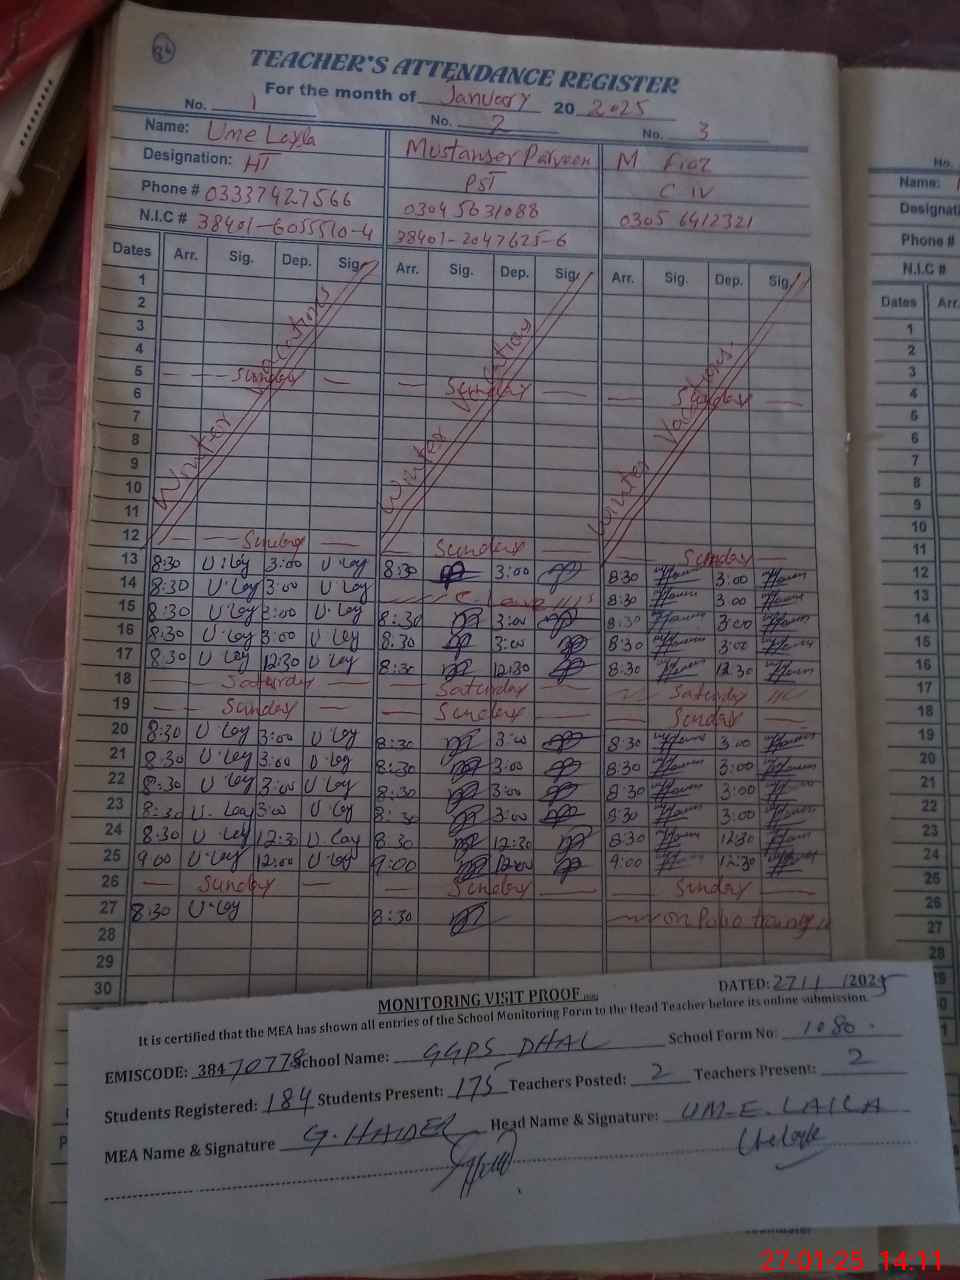 34
TEACHER'S ATTENDANCE REGISTER
For the month of January 20 2025
No. 1 No. 2 No. 3
Name: Ume Layla Mustanser Parveen M Fiaz
Designation: HT PST C IV
Phone # 03337427566 0304 5631088 0305 6412321
N.I.C # 38401-6055510-4 38401-2047625-6
Dates Arr. Sig. Dep. Sig. Arr. Sig. Dep. Sig. Arr. Sig. Dep. Sig.
1
2
3
4
5 Sunday Sunday Sunday
6
7
8
9
10
11
Winter Vacations Winter Vacations Winter Vacations
12 Sunday Sunday Sunday
13 8:30 U.Lay 3:00 U.Lay 8:30 3:00 8:30 3:00
14 8:30 U.Lay 3:00 U.Lay C Leave 8:30 3:00
15 8:30 U.Lay 3:00 U.Lay 8:30 3:00 8:30 3:00
16 8:30 U.Lay 3:00 U.Lay 8:30 3:00 8:30 3:00
17 8:30 U Lay 12:30 U Lay 8:30 12:30 8:30 12:30
18 Saturday Saturday Saturday
19 Sunday Sunday Sunday
20 8:30 U.Lay 3:00 U.Lay 8:30 3:00 8:30 3:00
21 8:30 U.Lay 3:00 U.Lay 8:30 3:00 8:30 3:00
22 8:30 U.Lay 3:00 U.Lay 8:30 3:00 8:30 3:00
23 8:30 U.Lay 3:00 U.Lay 8:30 3:00 8:30 3:00
24 8:30 U.Lay 12:30 U.Lay 8:30 12:30 8:30 12:30
25 9:00 U.Lay 12:00 U.Lay 9:00 12:00 9:00 12:30
26 Sunday Sunday Sunday
27 8:30 U.Lay 8:30 on Polio training
28
29
30
No.
Name:
Phone #
N.I.C #
Dates Arr.
1
2
3
4
5
6
7
8
9
10
11
12
13
14
15
16
17
18
19
20
21
22
23
24
25
26
27
28
MONITORING VISIT PROOF DATED: 27/1/2025
It is certified that the MEA has shown all entries of the School Monitoring Form to the Head Teacher before its online submission.
EMISCODE: 38470778 School Name: GGPS DHAL School Form No: 1080.
Students Registered: 184 Students Present: 175 Teachers Posted: 2 Teachers Present: 2
MEA Name & Signature G. HAIDER Head Name & Signature: UM-E-LAILA
Ume Layla
27-01-25 14:11